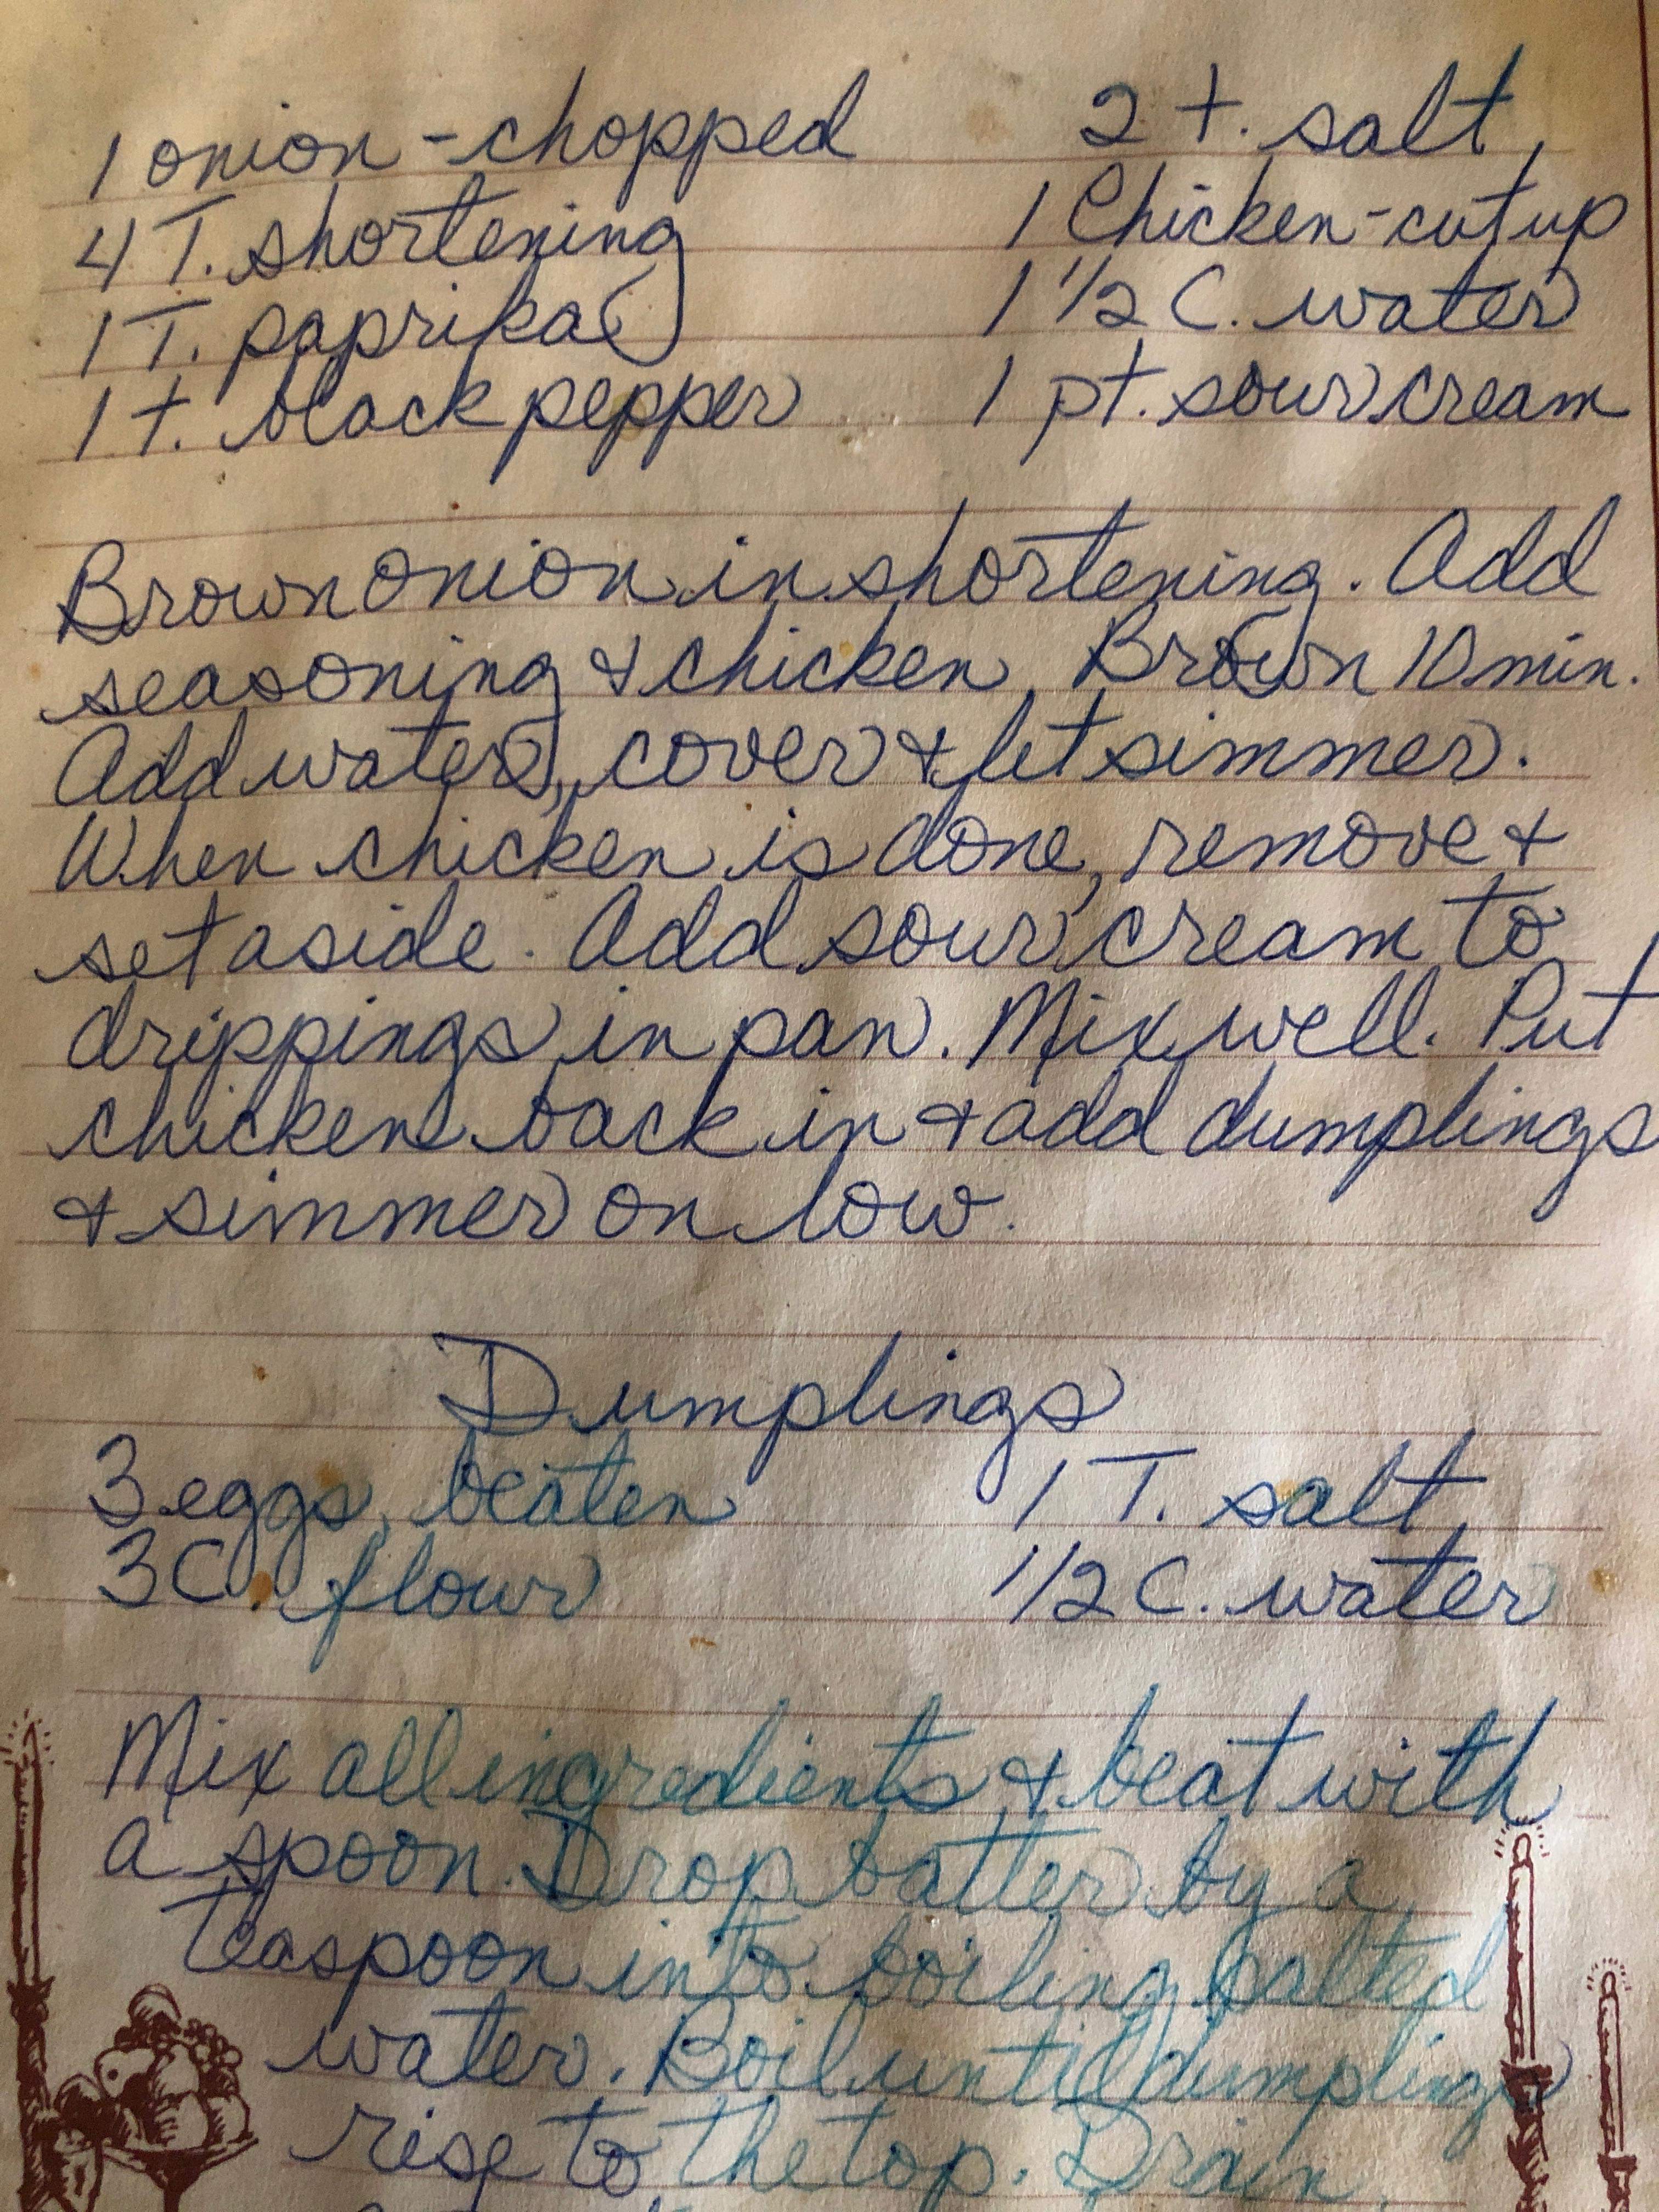 1 onion - chopped 2 t. salt
4 T. shortening 1 Chicken - cut up
1 T. paprika 1 1/2 C. water
1 t. black pepper 1 pt. sour cream
Brown onion in shortening. Add
seasoning & chicken. Brown 10 min.
Add water, cover & let simmer.
When chicken is done, remove &
set aside. Add sour cream to
drippings in pan. Mix well. Put
chicken back in & add dumplings
& simmer on low.
Dumplings
3 eggs, beaten 1 T. salt
3 C. flour 1/2 C. water
Mix all ingredients & beat with
a spoon. Drop batter by a
teaspoon into boiling salted
water. Boil until dumplings
rise to the top. Drain